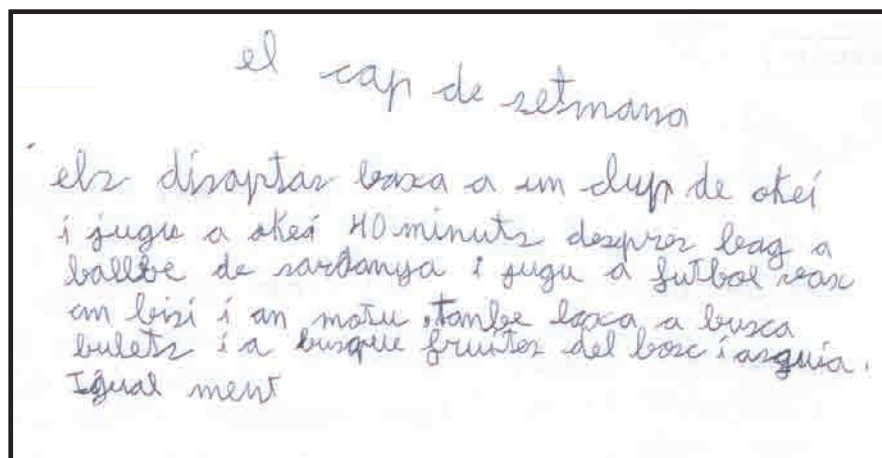 el cap de setmana
els disaptas baxa a un clup de okei
i jugu a okei 40 minuts despres bag a
ballbe de sardanya i jugu a futbol vax
am bisi i an motu. tambe baxa a busca
bulets i a busque fruites del bosc i asguia.
Igual ment